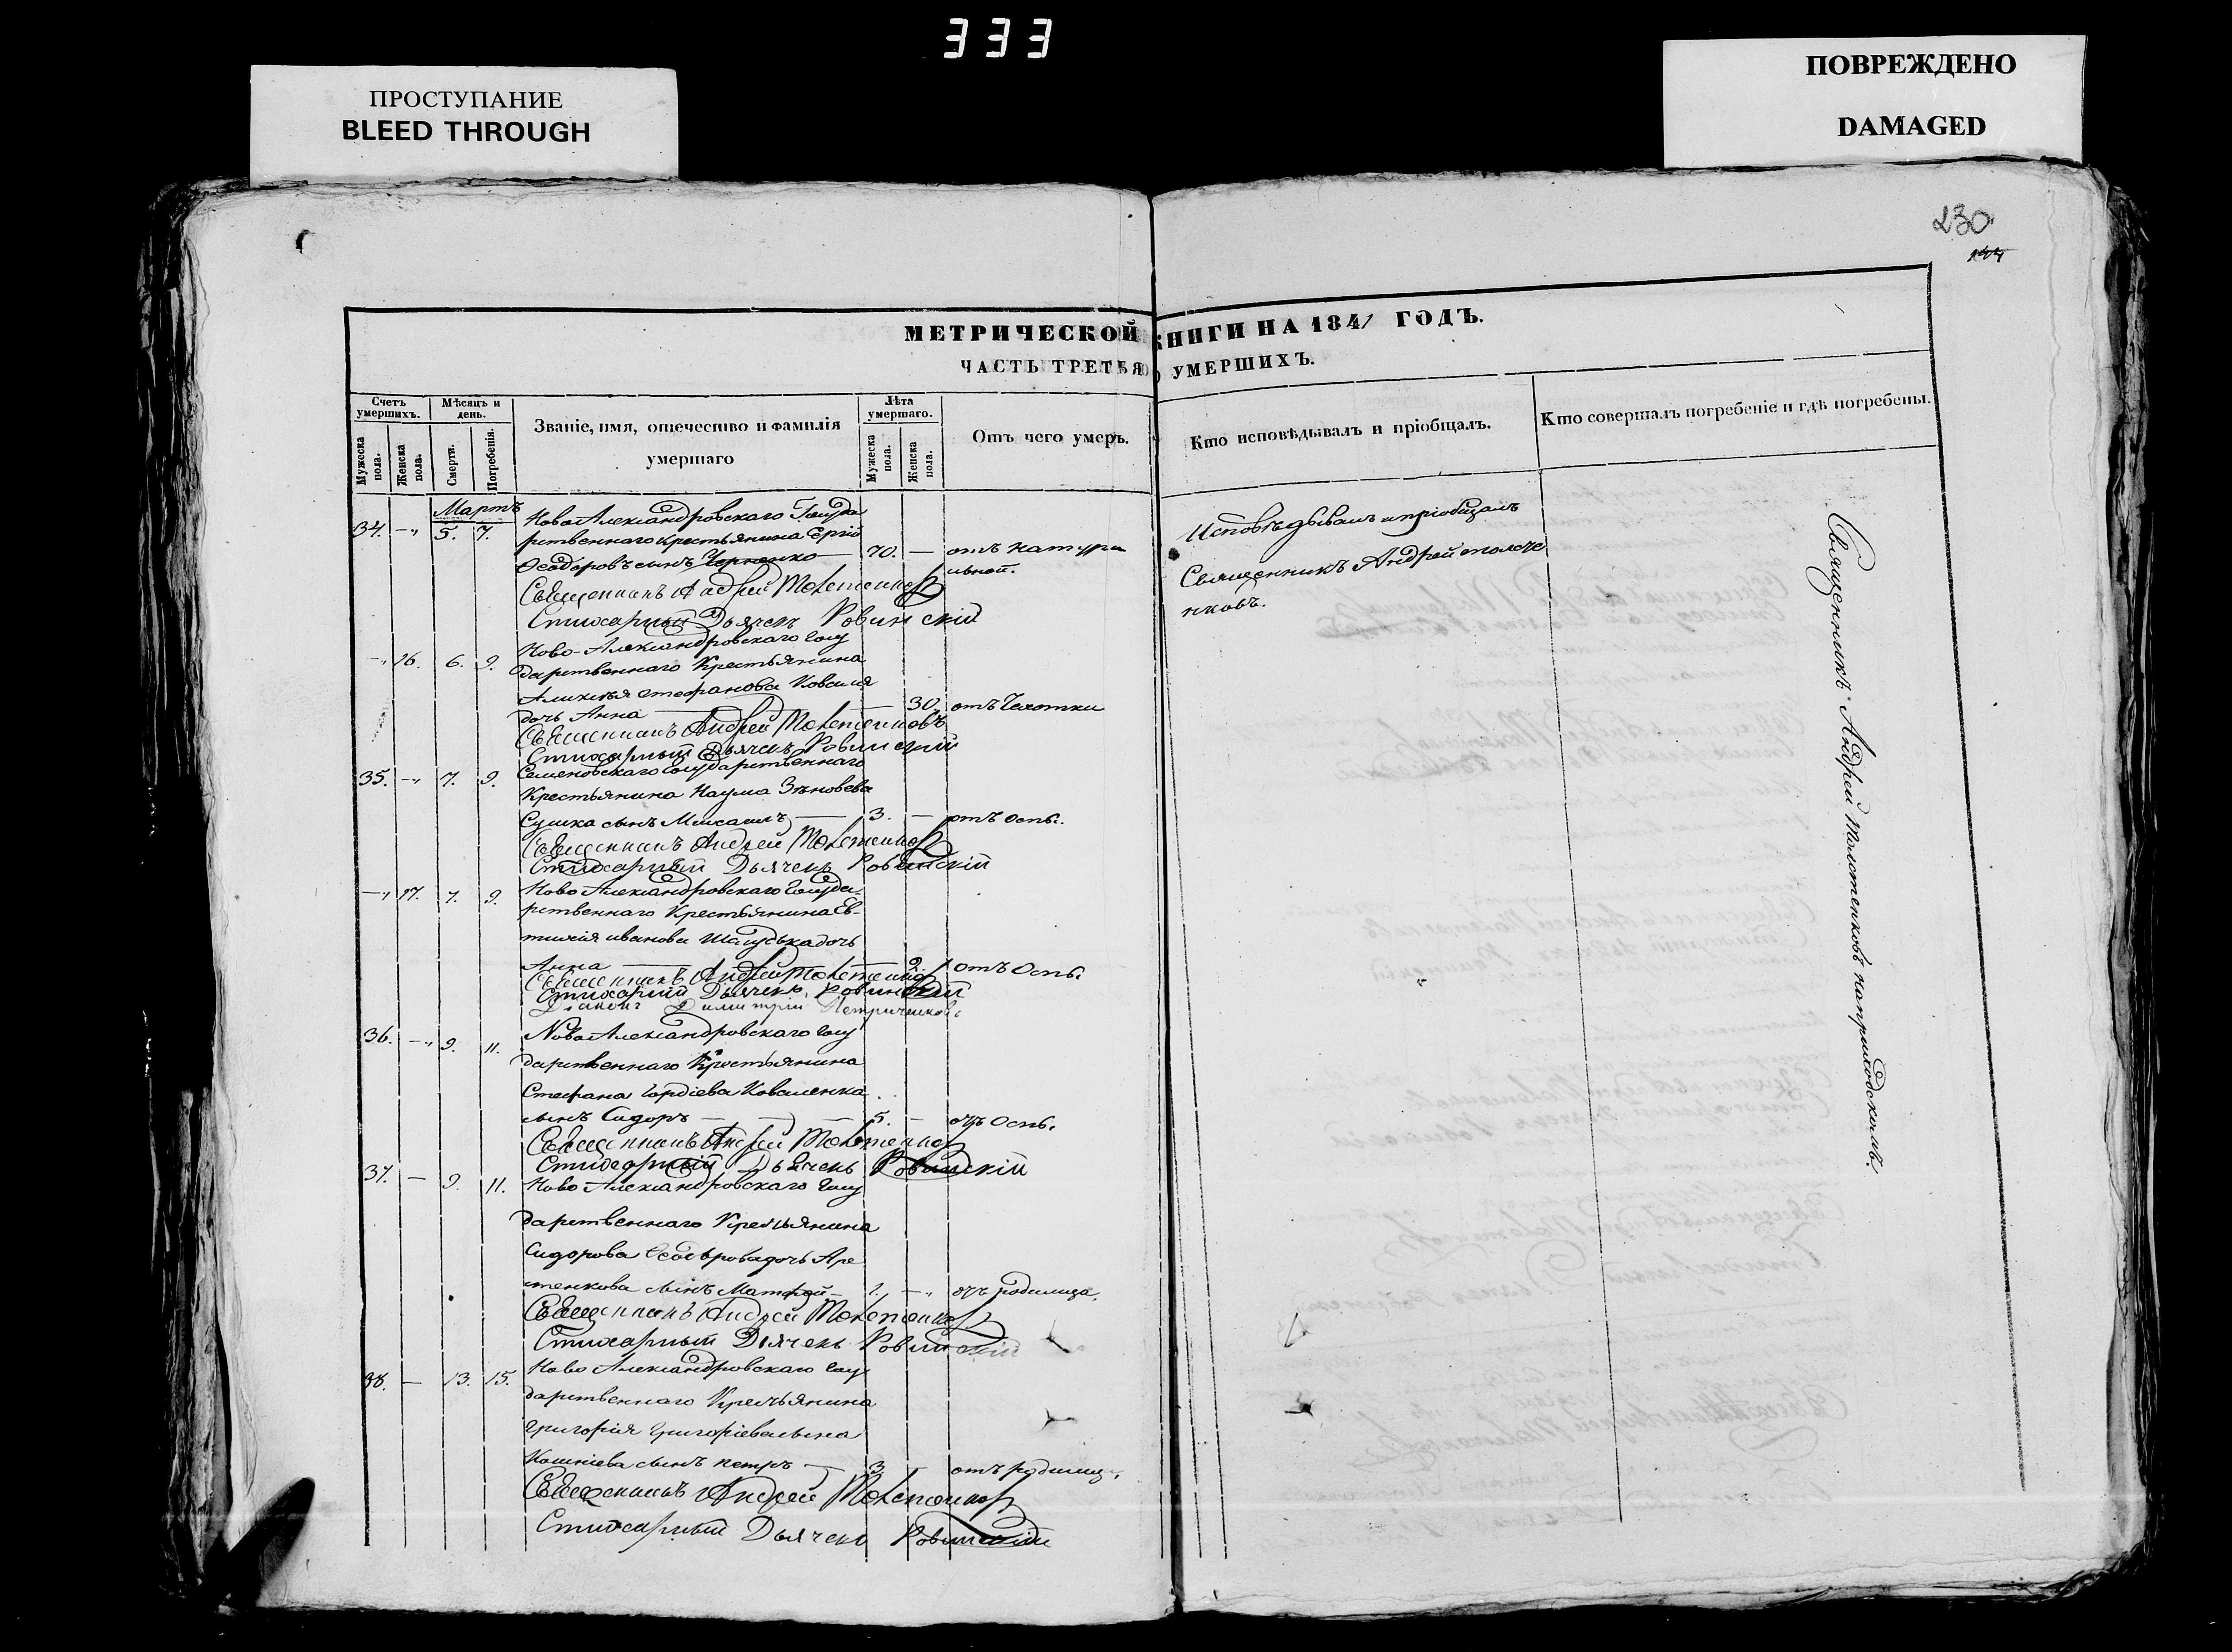 333
ПРОСТУПАНИЕ
BLEED THROUGH
ПОВРЕЖДЕНО
DAMAGED
230
МЕТРИЧЕСКОЙ КНИГИ НА 1841 ГОДЪ.
ЧАСТЬ ТРЕТЬЯ О УМЕРШИХЪ.
Счетъ умершихъ.
Мужеска пола.
Женска пола.
Мѣсяцъ и день.
Смерти.
Погребенія.
Званіе, имя, отечество и фамилія умершаго
Лѣта умершаго.
Мужеска пола.
Женска пола.
Отъ чего умеръ.
Кто исповѣдывалъ и пріобщалъ.
Кто совершалъ погребеніе и гдѣ погребены.
Мартъ
34. —„ 5. 7. Ново Александровскаго Госуда
рственнаго крестьянина Сергій
Ѳеодоровъ сынъ Черненко — 70. — отъ натура
льной.
Священникъ Андрей Толстенковъ
Стихарный Дьячекъ Ровинскій
—„ 16. 6. 9. Ново-Александровскаго Госу
дарственнаго Крестьянина
Стефанова Коваля
дочь Анна — 30. отъ Чахотки
Священникъ Андрей Толстенковъ
Стихарный Дьячекъ Ровинскій
35. —„ 7. 9. Семеновскаго Государственнаго
Крестьянина Наума Зѣновѣва
Сушка сынъ Михаилъ — 3. — отъ оспы.
Священникъ Андрей Толстенковъ
Стихарный Дьячекъ Ровинскій
—„ 17. 7. 9. Ново Александровскаго Госуда-
рственнаго Крестьянина Ев-
иванова дочь
Анна — 2. отъ Оспы
Священникъ Андрей Толстенковъ
Стихарный Дьячекъ Ровинскій
Діаконъ Димитрій
36. —„ 9. 11. Ново Александровскаго Госу
дарственнаго Крестьянина
Стефана Гордіева Коваленка
сынъ Сидоръ — 5. — отъ Оспы.
Священникъ Андрей Толстенковъ
Стихарный Дьячекъ Ровинскій
37. — 9. 11. Ново Александровскаго Госу
дарственнаго Крестьянина
Сидорова
сынъ Матфей — 1. —„ отъ родимца.
Священникъ Андрей Толстенковъ
Стихарный Дьячекъ Ровинскій
38. — 13. 15. Ново Александровскаго Госу
дарственнаго Крестьянина
Григорія Григоріева сына
сынъ Петръ — 3 — отъ родимц.
Священникъ Андрей Толстенковъ
Стихарный Дьячекъ Ровинскій
Исповѣдывалъ и пріобщалъ
Священникъ Андрей толсте
нковъ.
Священникъ Андрей толстенковъ наприходскомъ.